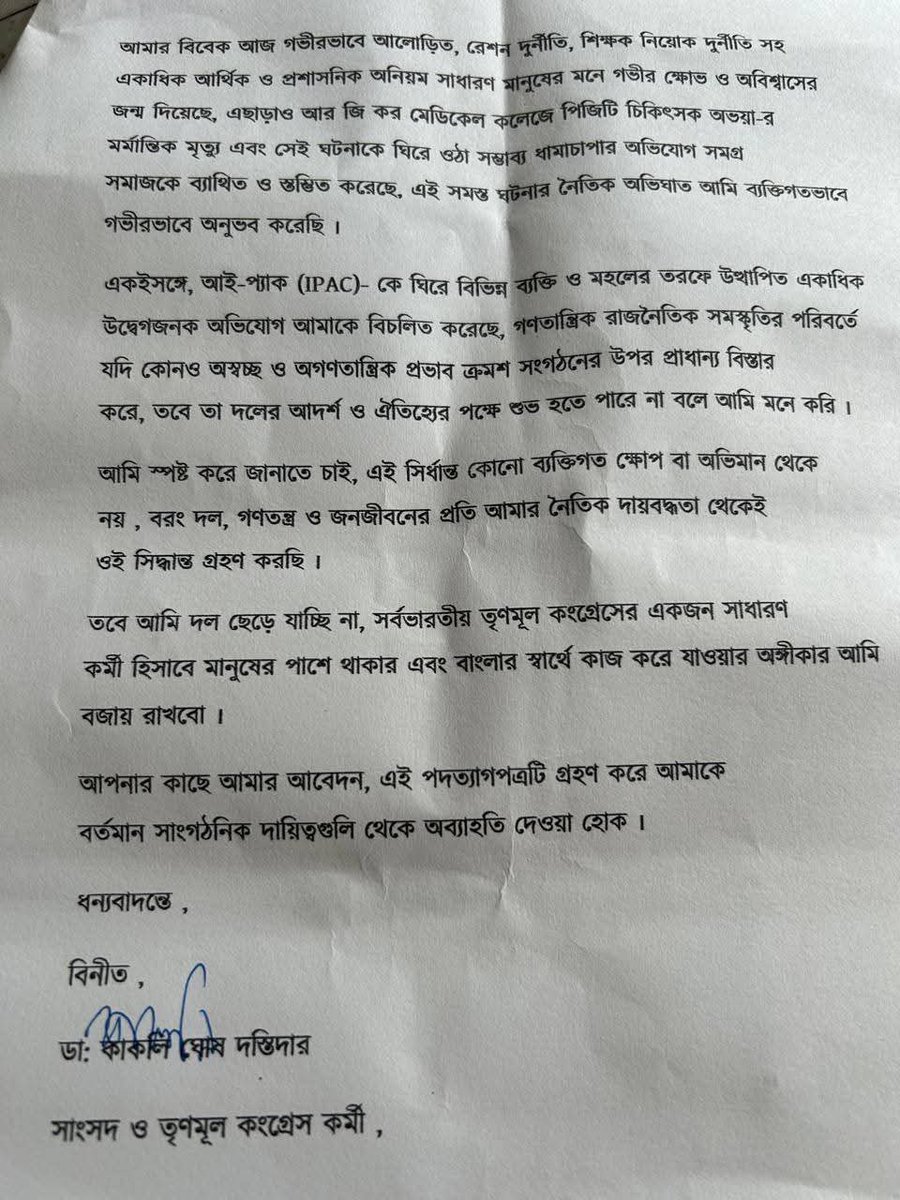 আমার বিবেক আজ গভীরভাবে আলোড়িত, রেশন দুর্নীতি, শিক্ষক নিয়োক দুর্নীতি সহ
একাধিক আর্থিক ও প্রশাসনিক অনিয়ম সাধারণ মানুষের মনে গভীর ক্ষোভ ও অবিশ্বাসের
জন্ম দিয়েছে, এছাড়াও আর জি কর মেডিকেল কলেজে পিজিটি চিকিৎসক অভয়া-র
মর্মান্তিক মৃত্যু এবং সেই ঘটনাকে ঘিরে ওঠা সম্ভাব্য ধামাচাপার অভিযোগ সমগ্র
সমাজকে ব্যাথিত ও স্তম্ভিত করেছে, এই সমস্ত ঘটনার নৈতিক অভিঘাত আমি ব্যক্তিগতভাবে
গভীরভাবে অনুভব করেছি ।
একইসঙ্গে, আই-প্যাক (IPAC)- কে ঘিরে বিভিন্ন ব্যক্তি ও মহলের তরফে উত্থাপিত একাধিক
উদ্বেগজনক অভিযোগ আমাকে বিচলিত করেছে, গণতান্ত্রিক রাজনৈতিক সমস্কৃতির পরিবর্তে
যদি কোনও অস্বচ্ছ ও অগণতান্ত্রিক প্রভাব ক্রমশ সংগঠনের উপর প্রাধান্য বিস্তার
করে, তবে তা দলের আদর্শ ও ঐতিহ্যের পক্ষে শুভ হতে পারে না বলে আমি মনে করি ।
আমি স্পষ্ট করে জানাতে চাই, এই সির্ধান্ত কোনো ব্যক্তিগত ক্ষোপ বা অভিমান থেকে
নয় , বরং দল, গণতন্ত্র ও জনজীবনের প্রতি আমার নৈতিক দায়বদ্ধতা থেকেই
ওই সিদ্ধান্ত গ্রহণ করছি ।
তবে আমি দল ছেড়ে যাচ্ছি না, সর্বভারতীয় তৃণমূল কংগ্রেসের একজন সাধারণ
কর্মী হিসাবে মানুষের পাশে থাকার এবং বাংলার স্বার্থে কাজ করে যাওয়ার অঙ্গীকার আমি
বজায় রাখবো ।
আপনার কাছে আমার আবেদন, এই পদত্যাগপত্রটি গ্রহণ করে আমাকে
বর্তমান সাংগঠনিক দায়িত্বগুলি থেকে অব্যাহতি দেওয়া হোক ।
ধন্যবাদন্তে ,
বিনীত ,
ডা: কাকলি ঘোষ দস্তিদার
সাংসদ ও তৃণমূল কংগ্রেস কর্মী ,